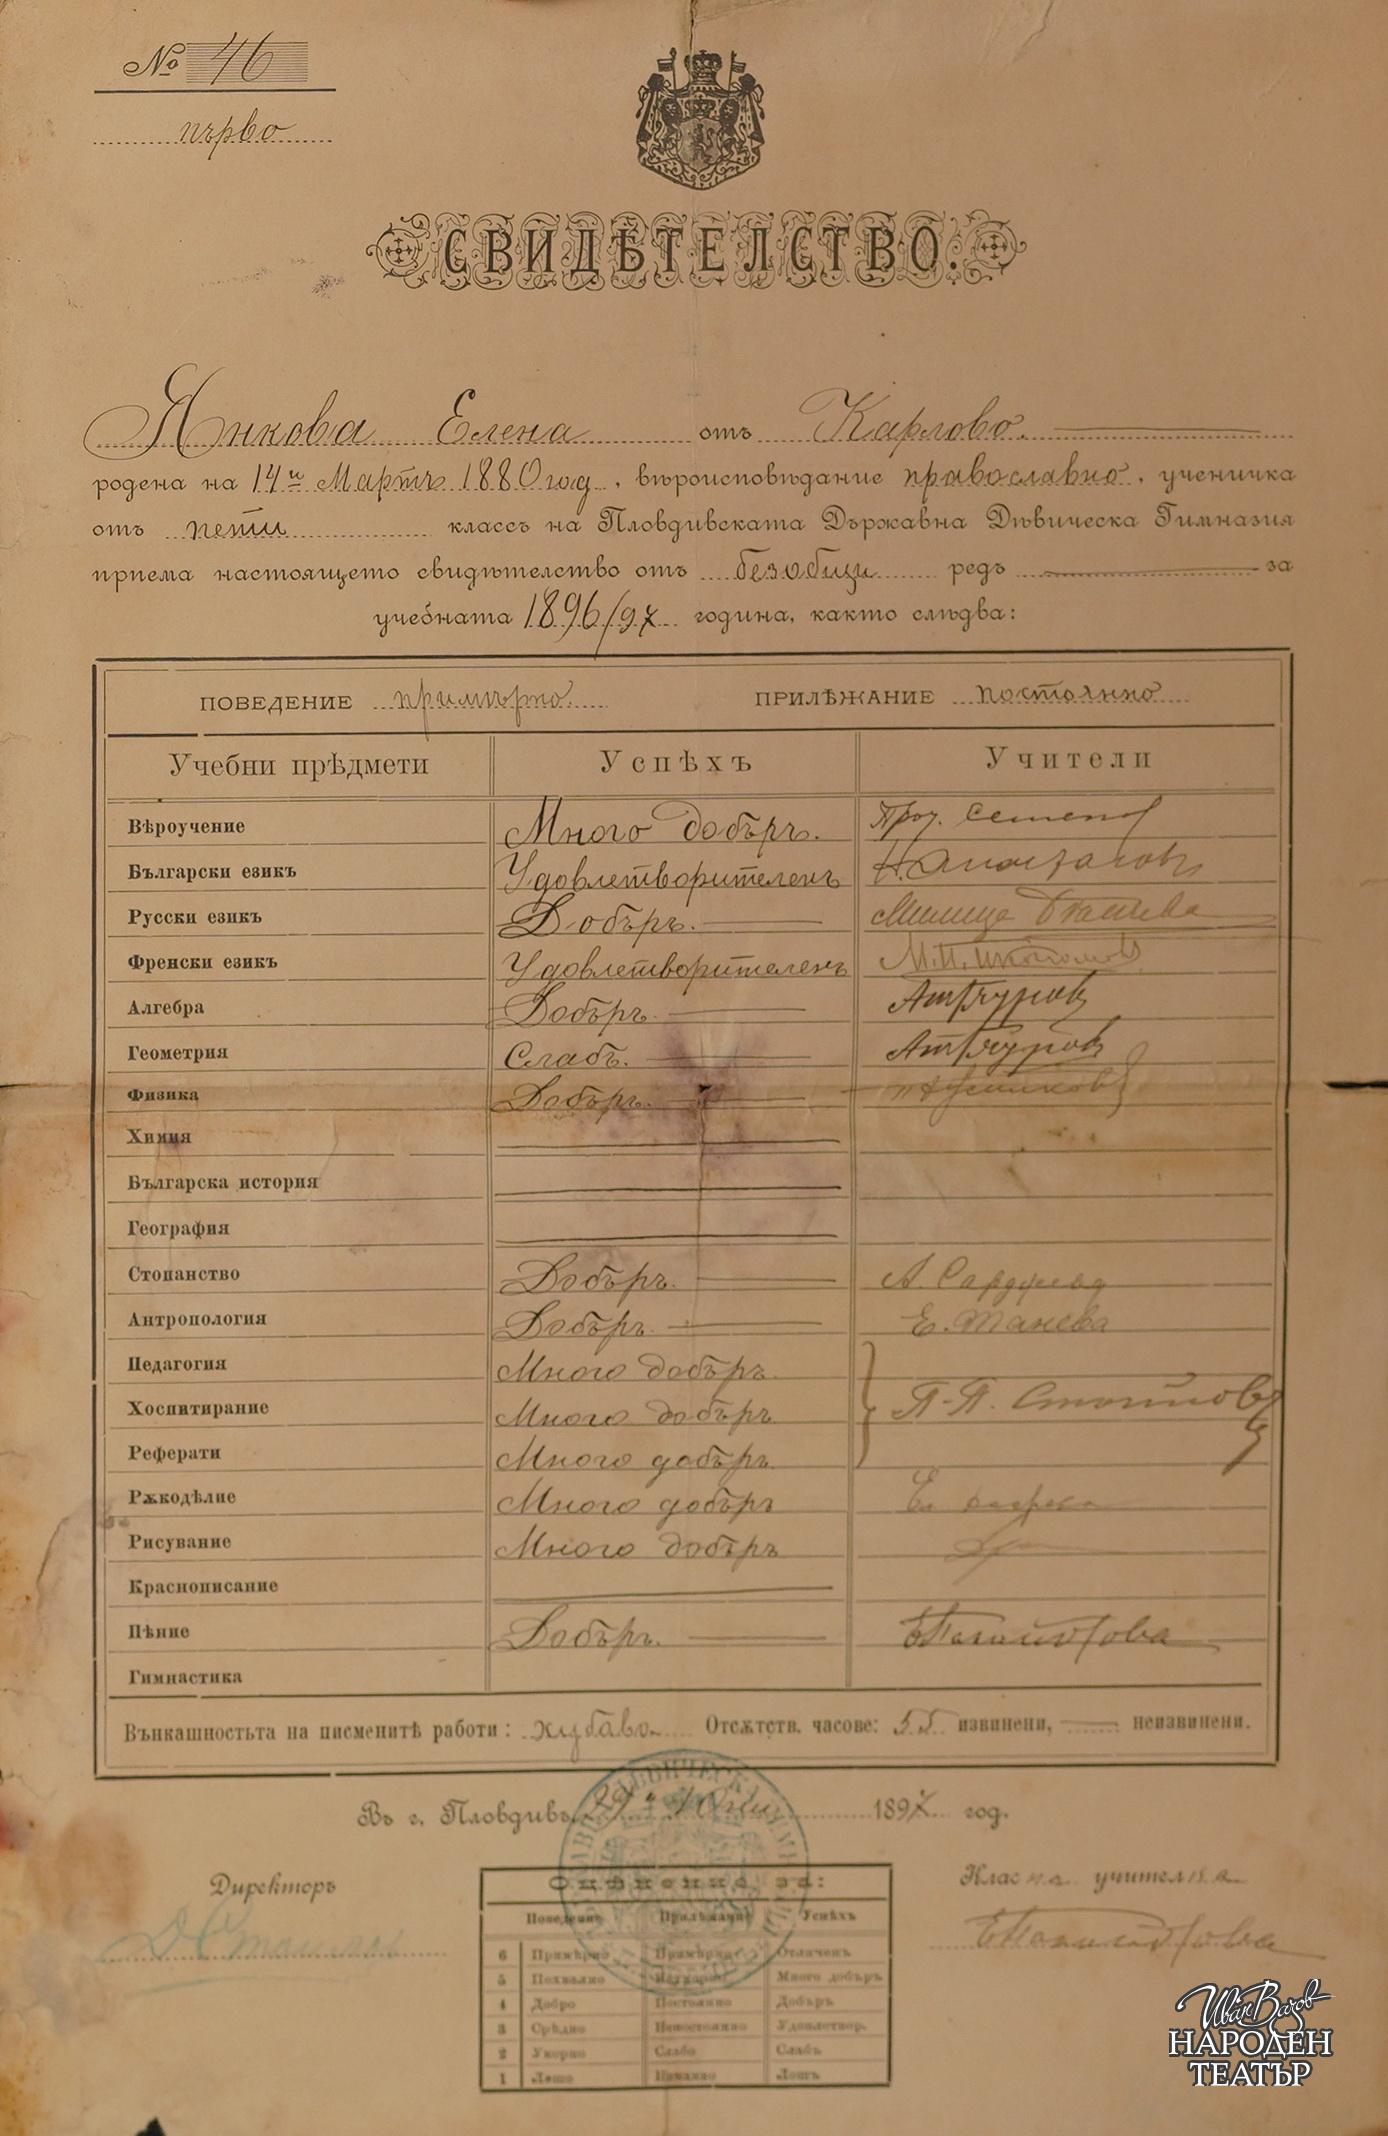 № 46
първо
СВИДѢТЕЛСТВО.
Янкова Елена отъ Карлово.
родена на 14й Мартъ 1880 год, вѣроисповѣдание православно, ученичка
отъ пети классъ на Пловдивската Държавна Дѣвическа Гимназия
приема настоящето свидѣтелство отъ безобщи редъ за
учебната 1896/97 година, както слѣдва:
ПОВЕДЕНИЕ примѣрно. ПРИЛѢЖАНИЕ постоянно
Учебни прѣдмети Успѣхъ Учители
Вѣроучение Много добъръ.
Български езикъ Удовлетворителенъ
Русски езикъ Добъръ. Милица
Френски езикъ Удовлетворителенъ
Алгебра Добъръ.
Геометрия Слабъ.
Физика Добъръ.
Химия
Българска история
География
Стопанство Добъръ.
Антропология Добъръ. Е. Танева
Педагогия Много добъръ.
Хоспитирание Много добъръ П. П. Стоиловъ
Реферати Много добъръ
Рѫкодѣлие Много добъръ
Рисувание Много добъръ
Краснописание
Пѣние Добъръ.
Гимнастика
Вънкашностьта на писменитѣ работи: хубаво. Отсѫтств. часове: 55 извинени, неизвинени.
Въ г. Пловдивъ, 29й Юни 1897 год.
Директоръ Класна учителка
Оцѣнение за:
Поведение Прилѣжание Успѣхъ
6 Примѣрно Примѣрно Отличенъ
5 Похвално Много добъръ
4 Добро Постоянно Добъръ
3 Срѣдно Непостоянно Удовлетвор.
2 Укорно Слабо Слабъ
1 Лошо Нималко Лошъ
Иван Вазов
НАРОДЕН
ТЕАТЪР